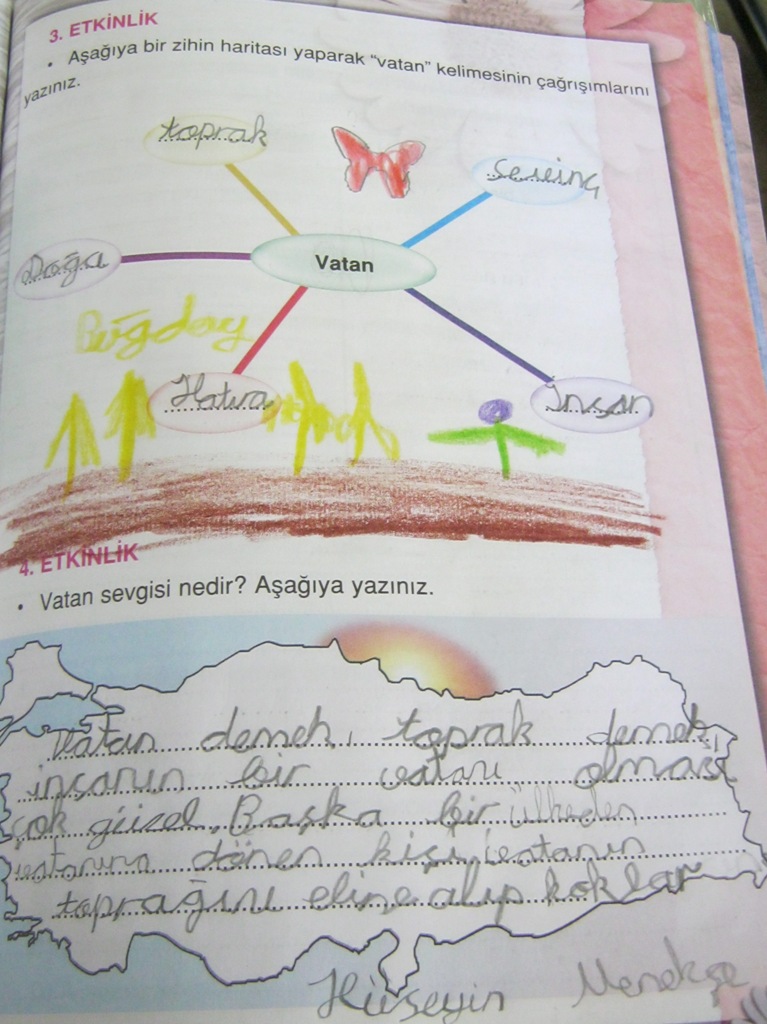 3. ETKİNLİK
• Aşağıya bir zihin haritası yaparak "vatan" kelimesinin çağrışımlarını
yazınız.
toprak
sevinç
Vatan
Doğa
Buğday
Hatıra
İnsan
4. ETKİNLİK
• Vatan sevgisi nedir? Aşağıya yazınız.
Vatan demek, toprak demek,
insanın bir vatanı olması
çok güzel. Başka bir ülkeden
vatanına dönen kişi, vatanın
toprağını eline alıp koklar
Hüseyin Menekşe